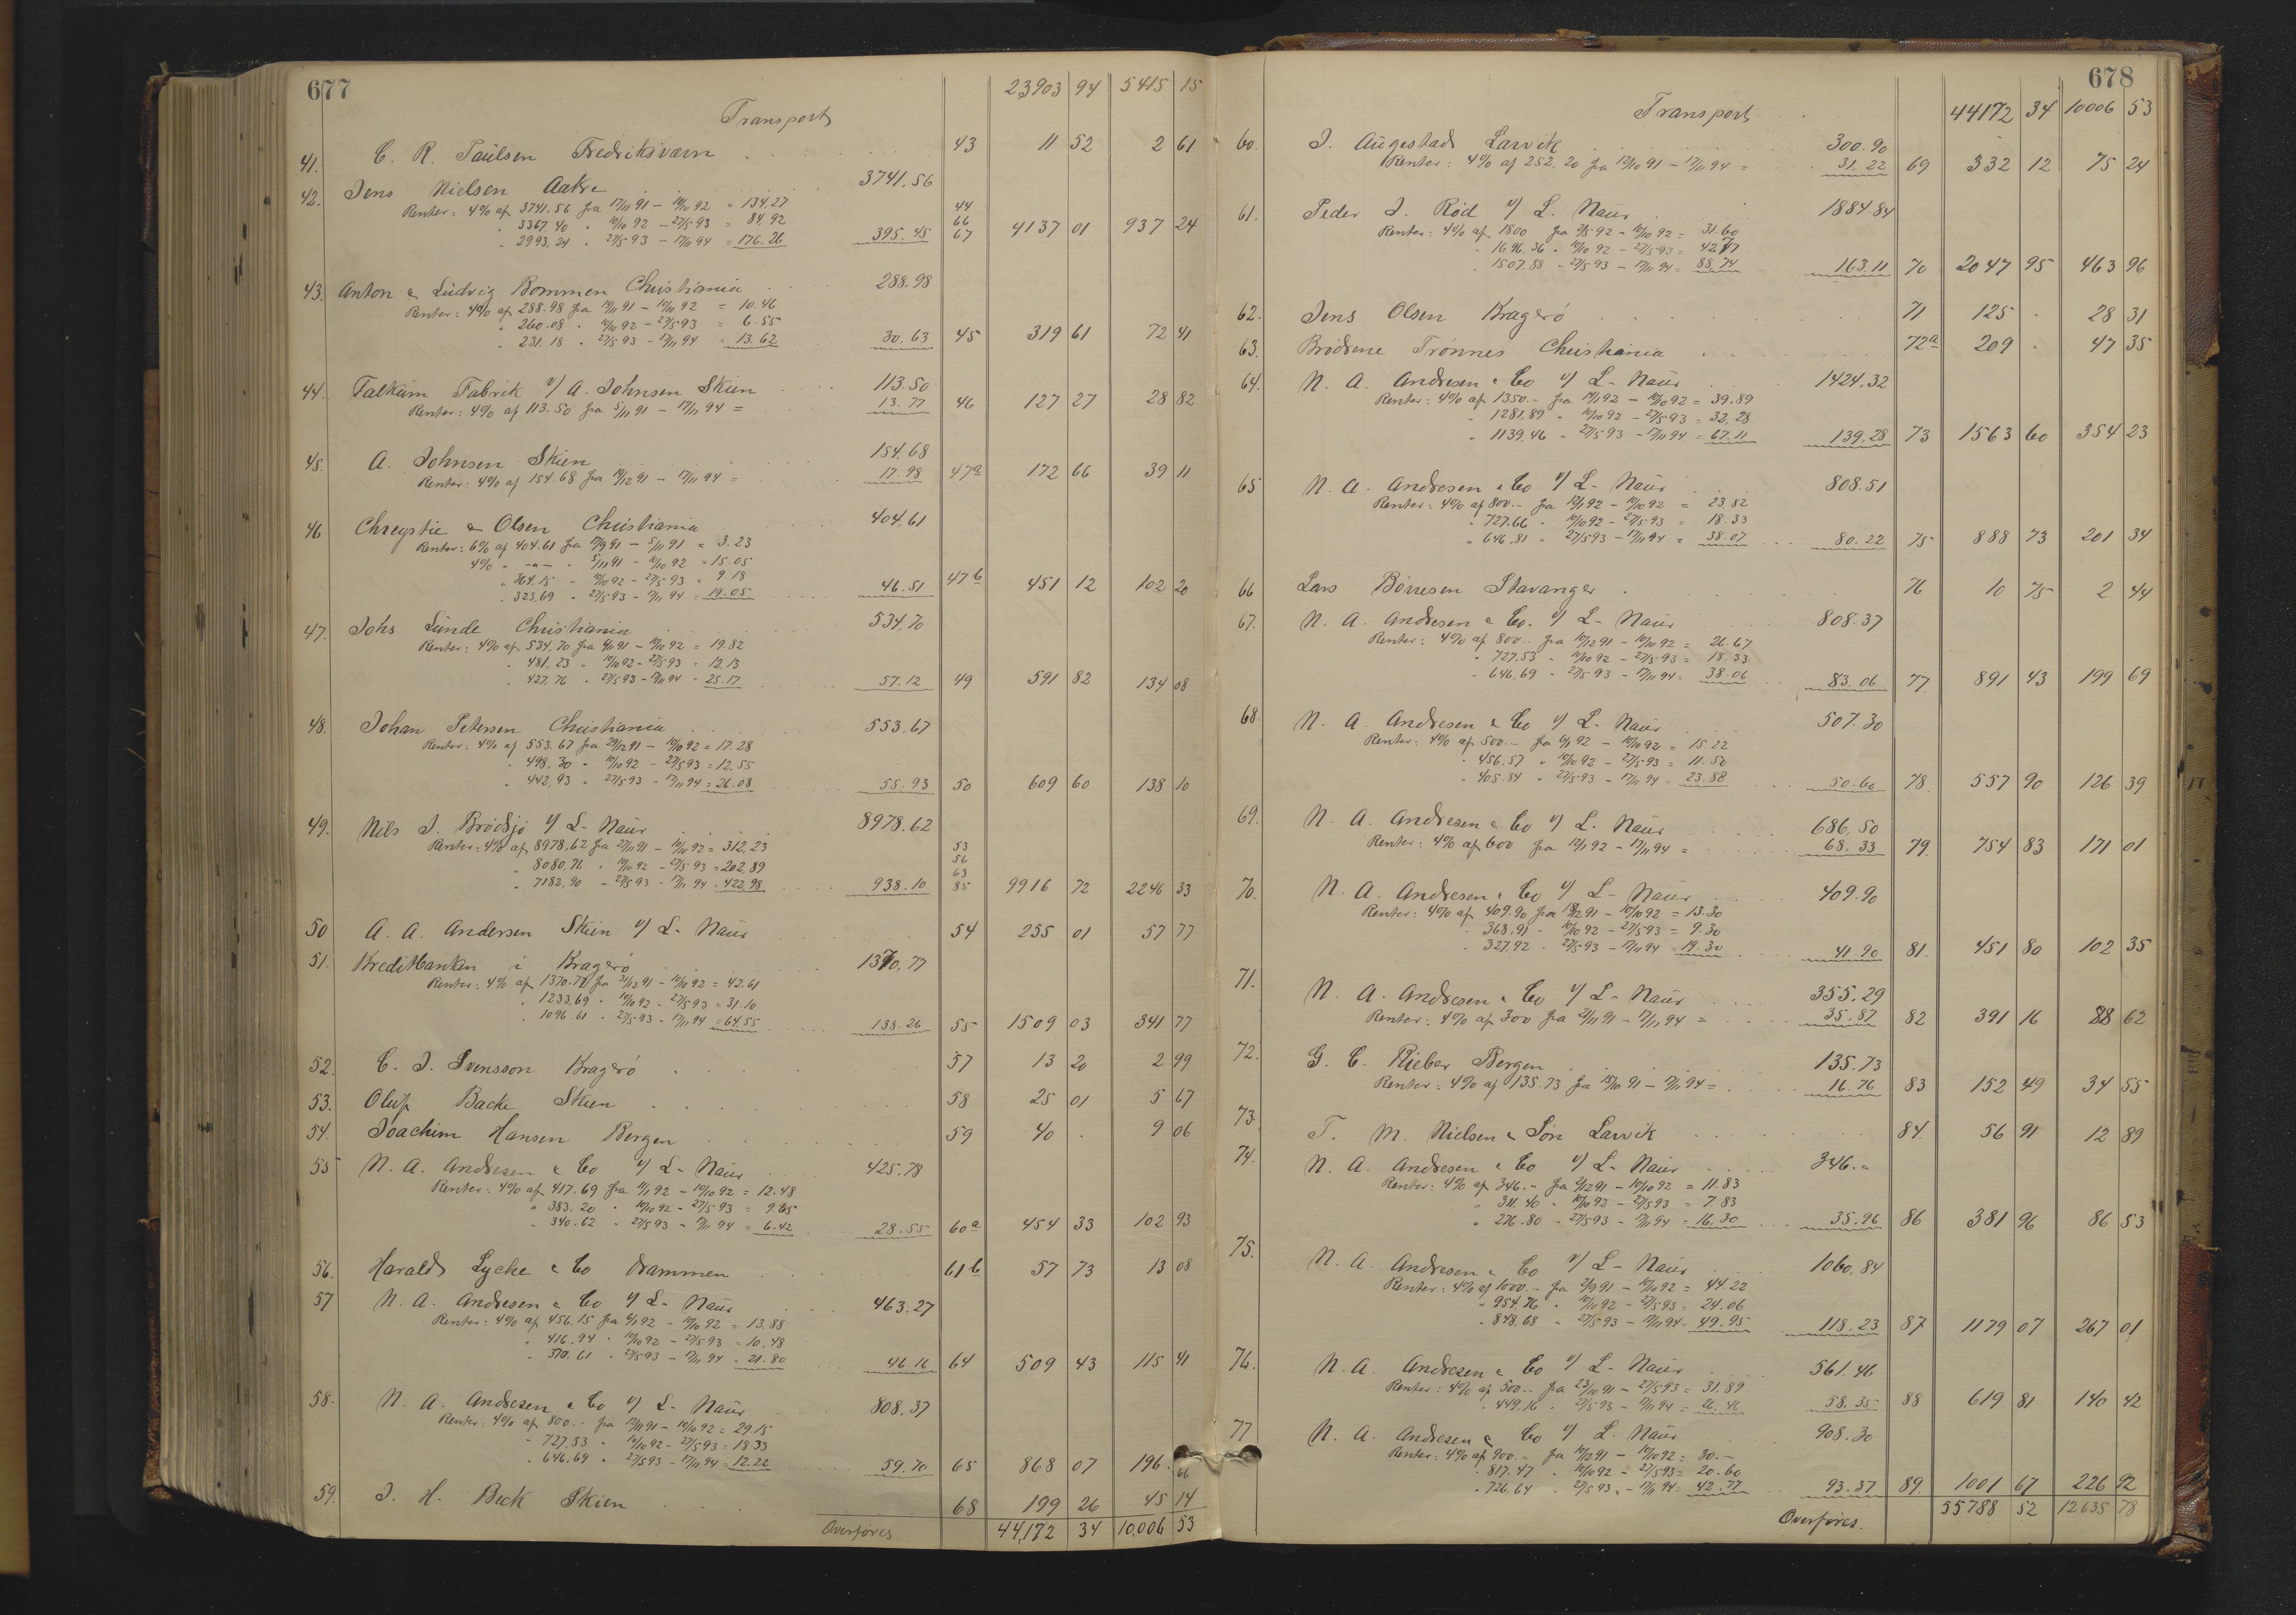 677
Transport 23903 94 5415 15
41. C. R. Paulsen Fredriksværn 43 11 52 2 61
42. Jens Nielsen Aakre 3741.56
Renter: 4% af 3741.56 fra 17/11 91 - 10/10 92 = 134,27 44
" 3367,40 " 10/10 92 - 27/5 93 = 84.92 66
" 2993,24 " 27/5 93 - 17/11 94 = 176.26 395.45 67 4137 01 937 24
43. Anton & Ludvig Bommen Christiania 288.98
Renter: 4% af 288.98 fra 17/11 91 - 10/10 92 = 10.46
" 260.08 " 10/10 92 - 27/5 93 = 6.55
" 231.18 " 27/5 93 - 17/11 94 = 13.62 30,63 45 319 61 72 41
44. Talkum Fabrik v/ A. Johnsen Skien 113.50
Renter: 4% af 113.50 fra 5/11 91 - 17/11 94 = 13.77 46 127 27 28 82
45 A. Johnsen Skien 154.68
Renter: 4% af 154.68 fra 19/12 91 - 17/11 94 = 17.98 47a 172 66 39 11
46 Chrystie & Olsen Christiania 404,61
Renter: 6% af 404.61 fra 17/9 91 - 5/11 91 = 3.23
4% " -"- " 5/11 91 - 10/10 92 = 15.05
" 364.15 " 10/10 92 - 27/5 93 = 9.18
" 323,69 " 27/5 93 - 17/11 94 = 19.05 46.51 47b 451 12 102 20
47. Johs Lunde Christiania 534,70
Renter: 4% af 534,70 fra 6/11 91 - 10/10 92 = 19.82
" 481,23 " 10/10 92 - 27/5 93 = 12.13
" 427.76 " 27/5 93 - 17/11 94 = 25.17 57.12 49 591 82 134 08
48. Johan Petersen Christiania 553.67
Renter: 4% af 553.67 fra 29/12 91 - 10/10 92 = 17.28
" 498,30 " 10/10 92 - 27/5 93 = 12,55
" 442,93 " 27/5 93 - 17/11 94 = 26.08 55.93 50 609 60 138 10
49. Nils J. Brødsjø v/ L. Naur 8978.62
Renter: 4% af 8978,62 fra 27/11 91 - 10/10 92 = 312,23 53
" 8080,76 " 10/10 92 - 27/5 93 = 202,89 56 63
" 7182,90 " 27/5 93 - 17/11 94 = 422,98 938.10 85 9916 72 2246 33
50 A. A. Andersen Skien v/ L. Naur 54 255 01 57 77
51. Kreditbanken i Kragerø 1370,77
Renter: 4% af 1370.77 fra 31/12 91 - 10/10 92 = 42.61
" 1233,69 " 10/10 92 - 27/5 93 = 31.10
" 1096.61 " 27/5 93 - 17/11 94 = 64,55 138.26 55 1509 03 341 77
52. C. J. Svensson Kragerø 57 13 20 2 99
53. Oluf Backe Skien 58 25 01 5 67
54. Joachim Hansen Bergen 59 40 . 9 06
55 N. A. Andresen & Co v/ L. Naur 425.78
Renter: 4% af 417.69 fra 11/1 92 - 10/10 92 = 12.48
" 383.20 " 10/10 92 - 27/5 93 = 9.65
" 340.62 " 27/5 93 - 17/11 94 = 6.42 28.55 60a 454 33 102 93
56. Harald Lyche & Co Drammen 61b 57 73 13 08
57 N. A. Andresen & Co v/ L. Naur 463.27
Renter: 4% af 456,15 fra 6/1 92 - 10/10 92 = 13.88
" 416.94 " 10/10 92 - 27/5 93 = 10,48
" 370.61 " 27/5 93 - 17/11 94 = 21.80 46.16 64 509 43 115 41
58. N. A. Andresen & Co v/ L. Naur 808,37
Renter: 4% af 800.- fra 12/11 91 - 10/10 92 = 29.15
" 727,53 " 10/10 92 - 27/5 93 = 18.33
" 646.69 " 27/5 93 - 17/11 94 = 12.22 59.70 65 868 07 196 66
59. J. H. Beck Skien 68 199 26 45 14
Overføres 44,172 34 10,006 53
678
Transport 44172 34 10006 53
60. J. Augestad Larvik 300.90
Renter: 4% af 252.20 fra 12/10 91 - 17/11 94 = 31.22 69 332 12 75 24
61. Peder J. Rød v/ L. Naur 1884.84
Renter: 4% af 1800 fra 2/5 92 - 10/10 92 = 31.60
" 1696.36 " 10/10 92 - 27/5 93 = 42.77
" 1507.88 " 27/5 93 - 17/11 94 = 88,74 163.11 70 2047 95 463 96
62. Jens Olsen Kragerø 71 125 . 28 31
63. Brødrene Trønnes Christiania 72a 209 . 47 35
64. N. A. Andresen & Co v/ L. Naur 1424.32
Renter: 4% af 1350.- fra 14/1 92 - 10/10 92 = 39.89
" 1281,89 " 10/10 92 - 27/5 93 = 32,28
" 1139.46 " 27/5 93 - 17/11 94 = 67.11 139.28 73 1563 60 354 23
65 N. A. Andresen & Co v/ L. Naur 808.51
Renter: 4% af 800.- fra 12/1 92 - 10/10 92 = 23,82
" 727.66 " 10/10 92 - 27/5 93 = 18.33
" 646.81 " 27/5 93 - 17/11 94 = 38.07 80.22 75 888 73 201 34
66 Lars Børresen Stavanger 76 10 75 2 44
67. N. A. Andresen & Co. v/ L. Naur 808.37
Renter: 4% af 800.- fra 10/12 91 - 10/10 92 = 26.67
" 727.53 " 10/10 92 - 27/5 93 = 18.33
" 646,69 " 27/5 93 - 17/11 94 = 38.06 83.06 77 891 43 199 69
68. N. A. Andresen & Co v/ L. Naur 507.30
Renter: 4% af 500.- fra 6/1 92 - 10/10 92 = 15.22
" 456.57 " 10/10 92 - 27/5 93 = 11.50
" 405.84 " 27/5 93 - 17/11 94 = 23.88 50.60 78. 557 90 126 39
69. N. A. Andresen & Co v/ L. Naur 686,50
Renter: 4% af 600 fra 12/1 92 - 17/11 94 = 68.33 79. 754 83 171 01
70. N. A. Andresen & Co v/ L. Naur 409.90
Renter: 4% af 409.90 fra 18/12 91 - 10/10 92 = 13.30
" 368,91 " 10/10 92 - 27/5 93 = 9.30
" 327.92 " 27/5 93 - 17/11 94 = 19.30 41.90 81. 451 80 102 35
71. N. A. Andresen & Co v/ L. Naur 355.29
Renter: 4% af 300 fra 21/11 91 - 17/11 94 = 35.87 82 391 16 88 62
72. G. C. Rieber Bergen 135.73
Renter: 4% af 135.73 fra 15/10 91 - 17/11 94 = 16.76 83 152 49 34 55
73. T. M. Nielsen & Søn Larvik 84. 56 91 12 89
74. N. A. Andresen & Co v/ L. Naur 346.-
Renter: 4% af 346.- fra 2/12 91 - 10/10 92 = 11.83
" 311.40 " 10/10 92 - 27/5 93 = 7.83
" 276.80 " 27/5 93 - 17/11 94 = 16.30 35.96 86 381 96 86 53
75. N. A. Andresen & Co v/ L. Naur 1060,84
Renter: 4% af 1000.- fra 2/9 91 - 10/10 92 = 44.22
" 954.76 " 10/10 92 - 27/5 93 = 24.06
" 848,68 " 27/5 93 - 17/11 94 = 49.95 118.23 87 1179 07 267 01
76. N. A. Andresen & Co v/ L. Naur 561.46
Renter: 4% af 500.- fra 23/10 91 - 27/5 93 = 31.89
" 449,16 " 27/5 93 - 17/11 94 = 26.46 58.35 88 619 81 140 42
77 N. A. Andresen & Co v/ L. Naur 908.30
Renter: 4% af 900.- fra 10/12 91 - 10/10 92 = 30.-
" 817.47 " 10/10 92 - 27/5 93 = 20.60
" 726.64 " 27/5 93 - 17/11 94 = 42.77 93.37 89. 1001 67 226 92
Overføres. 55788 52 12635 78